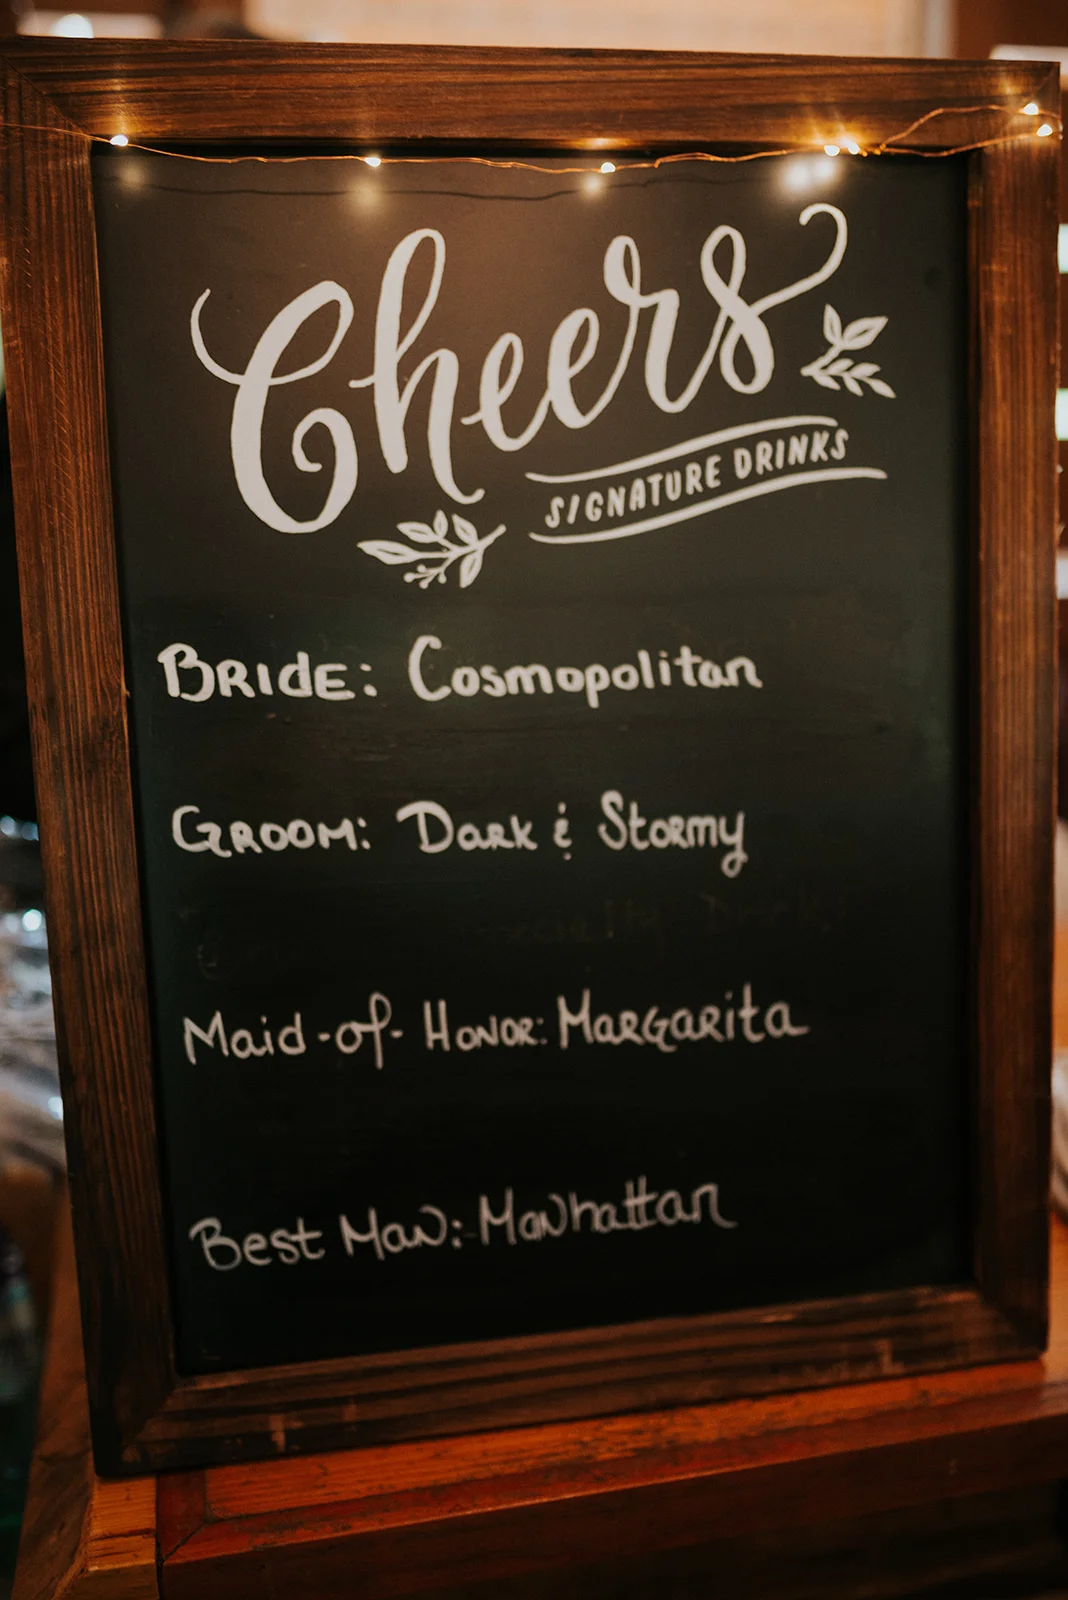 Cheers
SIGNATURE DRINKS
BRIdE: Cosmopolitan
GROOM: Dark & Stormy
Maid-of-HONOR: MARGARita
Best MaN: MaNhattan